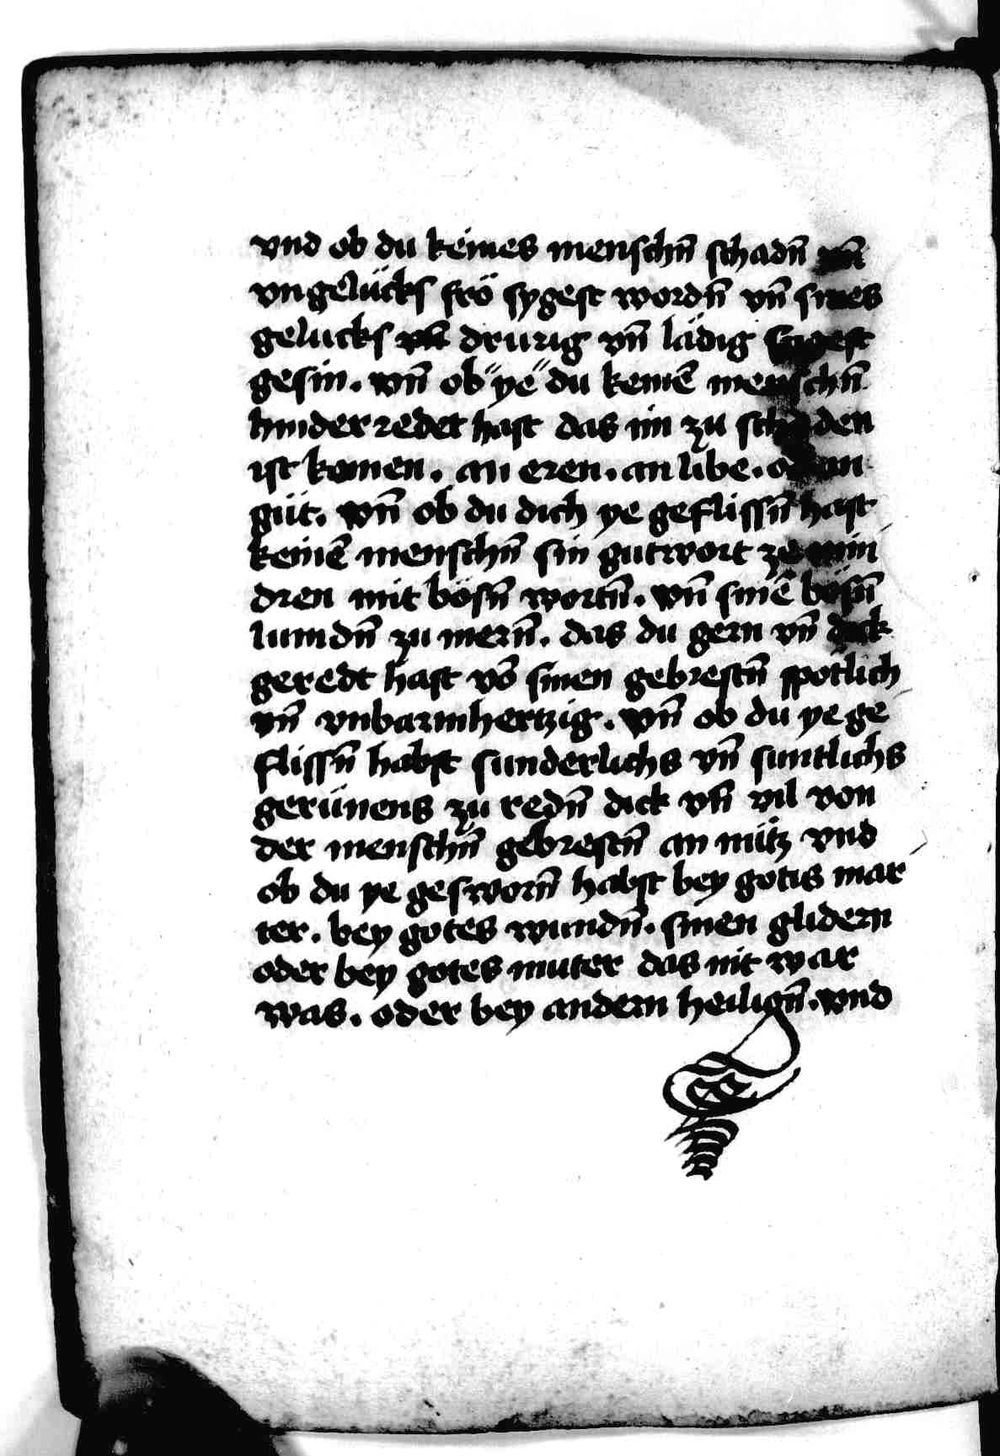 vnd ob du keines menschn̄ schadn̄ vn̄
vngelücks frö sygest wordn̄ vn̄ sines
gelucks vn̄ drurig vn̄ lädig sygest
gesin. vn̄ ob ye du keinē menschn̄
hinder redet hast das im zu schaden
ist komen. an eren. an libe. od an
güt. vn̄ ob du dich ye geflissn̄ hast
keinē menschn̄ sin gutwort ze min
dren mit bösn̄ wortn̄. vn̄ sinē bösn̄
lumdn̄ zu mern̄. das du gern vn̄ dick
geredt hast vō sinen gebrestn̄ spotlich
vn̄ vnbarmhertzig. vn̄ ob du ye ge
flissn̄ habst sunderlichs vn̄ suntlichs
gerünens zu redn̄ dick vn̄ vil von
der menschn̄ gebrestn̄ an nütz vnd
ob du ye gesworn̄ habst bey gotis mar
ter. bey gotes wundn̄. sinen glidern
oder bey gotes muter das nit war
was. oder bey andern heilign̄. vnd